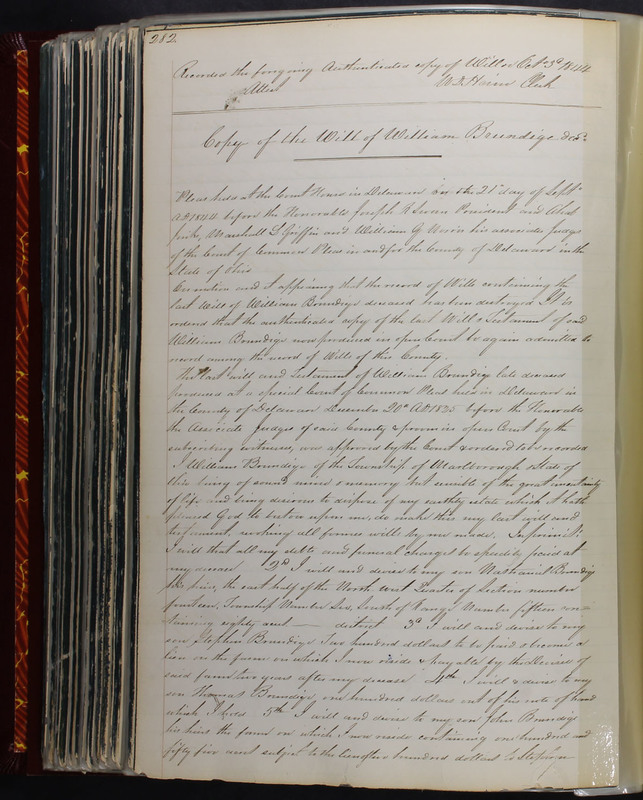 282
Recorded the foregoing Authenticated copy of Will on Oct 3d 1844
Attest W. D. Heim Clerk
Copy of the Will of William Brundige Decd.
Pleas held at the Court House in Delaware on the 21st day of Septr
AD 1844 before the Honorable Joseph R Swan President and
Marshall L Griffin and William G Norris his associates Judges
of the Court of Common Pleas in and for the County of Delaware in the
State of Ohio
On motion and it appearing that the record of Wills containing the
last will of William Brundige deceased has been destroyed It is
ordered that the authenticated copy of the last Will & Testament of said
William Brundige now produced in open Court be again admitted to
record among the record of Wills of this County.
The last will and Testament of William Brundige late deceased
produced at a special Court of Common Pleas held in Delaware in
the County of Delaware December 20th AD 1825 before the Honorable
the Associate Judges of said County & proven in open Court by the
subscribing witnesses, was approved by the Court & ordered to be recorded
I William Brundige of the Township of Marlborough State of
Ohio being of sound mind & memory but sensible of the great uncertainty
of life and being desirous to dispose of my earthly estate which it hath
pleased God to bestow upon me, do make this my last will and
testament, revoking all former wills by me made. Imprimis 1st
I will that all my debts and funeral charges be speedily paid at
my decease 2d I will and devise to my son Nathaniel Brundige
his heirs, the east half of the North west Quarter of Section number
fourteen, Township Number Six, South of Range Number fifteen con-
taining eighty acres — district 3d I will and devise to my
son Stephen Brundige Two hundred dollars to be paid & become a
lien on the farm on which I now reside & payable by the Devisee of
said farm two years after my decease 4th I will & devise to my
son Thomas Brundige one hundred dollars out of his note of hand
which I hold 5th I will and devise to my son John Brundige
his heirs the farm on which I now reside containing one hundred and
fifty five acres subject to the two hundred dollars to Stephen